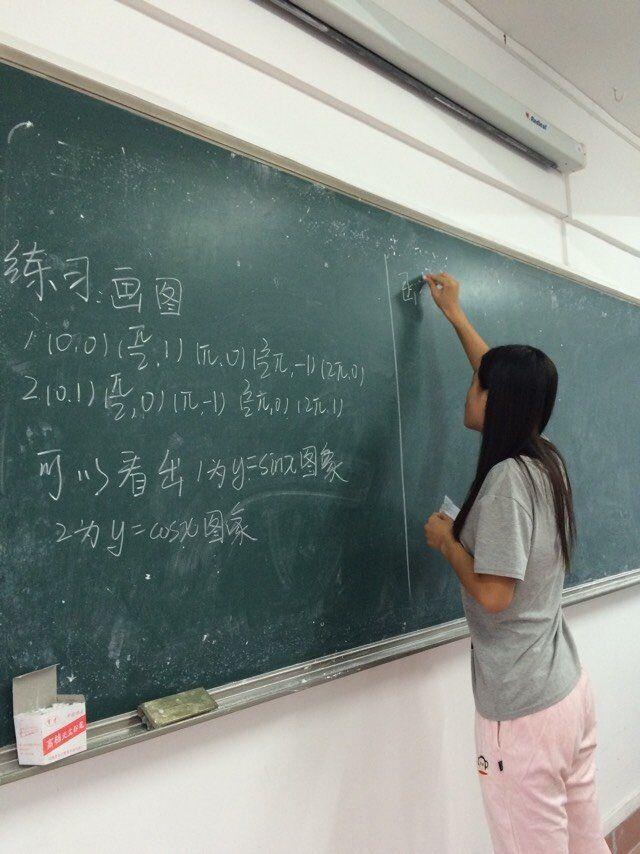 练习:画图
1 (0,0) (π/2,1) (π,0) (3/2π,-1) (2π,0)
2 (0.1) (π/2,0) (π,-1) (3/2π,0) (2π,1)
可以看出 1为y=sinx图象
2为y=cosx图象
Redleaf
高档无尘粉笔